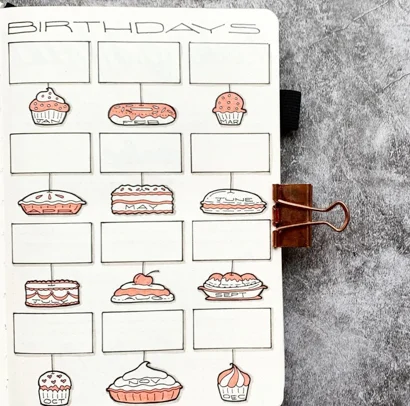 BIRTHDAYS
JAN FEB MAR
APR MAY JUNE
JULY AUG SEPT
OCT NOV DEC